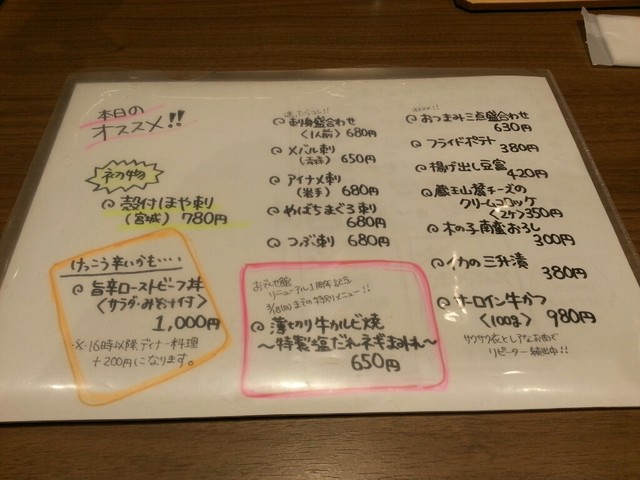 本日の
オススメ!!
初物
殻付ほや刺
(宮城) 780円
けっこう辛いかも・・・・
旨辛ローストビーフ丼
<サラダ・みそ汁付>
1,000円
※16時以降ディナー料理
+200円になります。
迷ったらコレ!!
刺身盛合わせ
<1人前> 680円
メバル刺
(青森) 650円
アイナメ刺
(岩手) 680円
やばちまぐろ刺
680円
つぶ刺 680円
リニューアル1周年記念
までの特別メニュー!!
薄切り牛カルビ焼
～特製塩だれネギまみれ～
650円
おつまみ三点盛合わせ
630円
フライドポテト
380円
揚げ出し豆富
420円
蔵王山麓チーズの
クリームコロッケ
<2ヶ>350円
木の子南蛮おろし
300円
イカの三升漬
380円
サーロイン牛かつ
<100g> 980円
サクサク衣とレアなお肉で
リピーター続出中!!